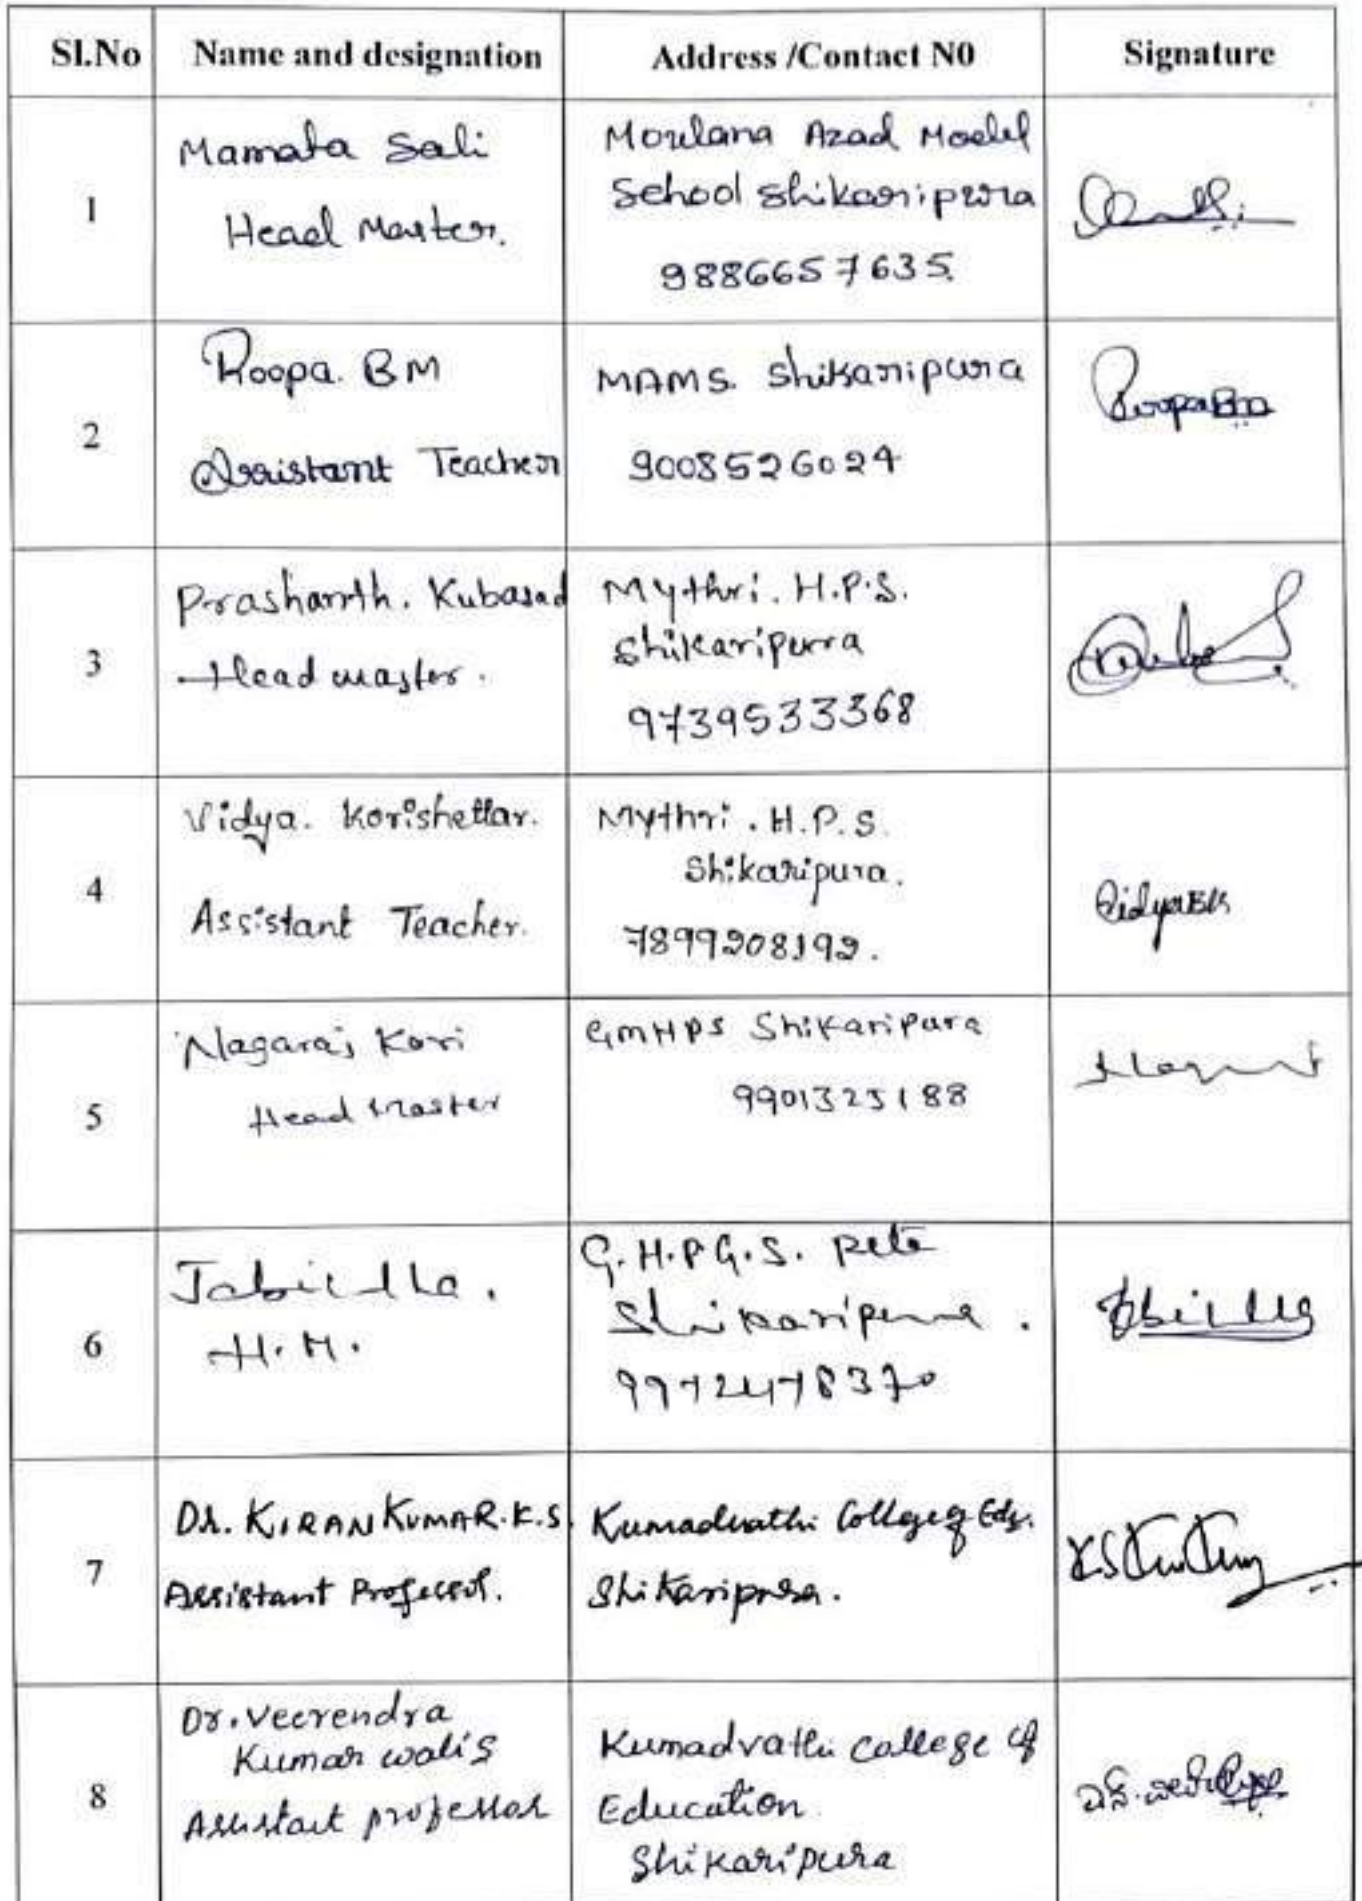 Sl.No Name and designation Address /Contact N0 Signature
1
Mamata Sali
Head Master.
Moulana Azad Model
School Shikaripura
9886657635
2
Roopa. BM
Assistant Teacher
MAMS. Shikaripura
9008526024
RoopaBM
3
Prashanth. Kubasad
Head master.
Mythri. H.P.S.
Shikaripura
9739533368
4
Vidya. Korishettar.
Assistant Teacher.
Mythri. H.P.S.
Shikaripura.
7899208192.
VidyaBK
5
Nagaraj Kori
Head Master
GMHPS Shikaripura
9901325188
6
Jabiulla.
H.M.
G.H.P.G.S. Pete
Shikaripura.
9972478370
7
Dr. KIRAN KUMAR.K.S.
Assistant Professor.
Kumadvathi College of Edn.
Shikaripura.
8
Dr. Veerendra
Kumar Wali S
Assistant professor
Kumadvathi college of
Education
Shikaripura